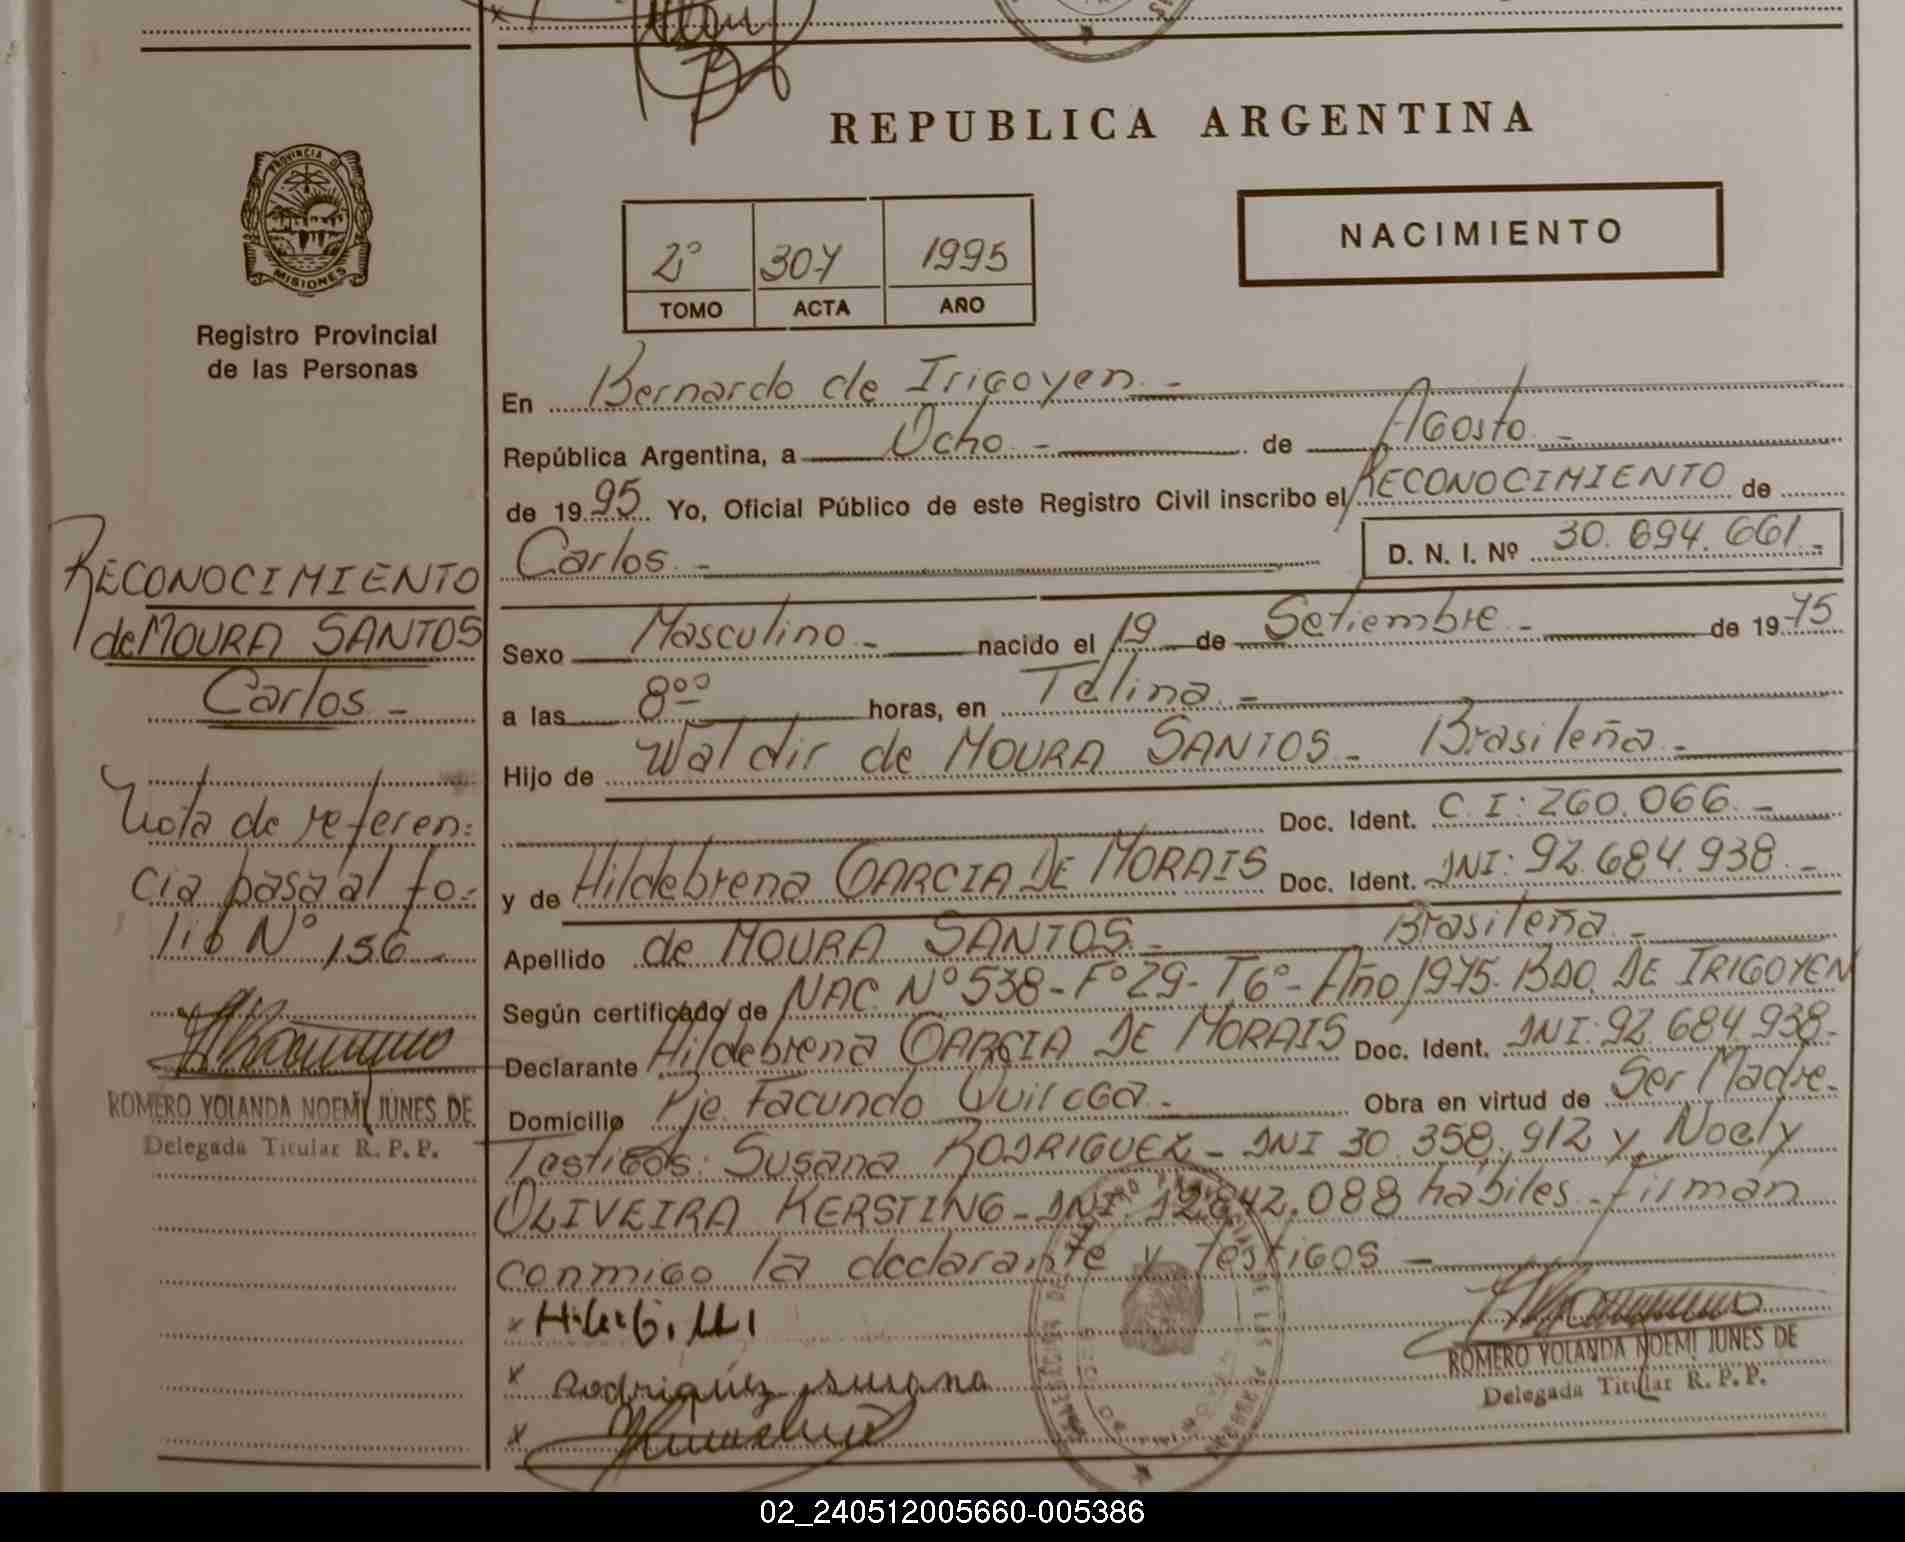 REPUBLICA ARGENTINA
PROVINCIA D
MISIONES
Registro Provincial
de las Personas
2º 307 1995
TOMO ACTA AÑO
NACIMIENTO
En Bernardo de Irigoyen.-
República Argentina, a Ocho.- de Agosto.-
de 1995. Yo, Oficial Público de este Registro Civil inscribo el RECONOCIMIENTO de
Carlos.- D. N. I. Nº 30.694.661.-
Sexo Masculino.- nacido el 19 de Setiembre.- de 1975
a las 8ºº horas, en Talina.-
Hijo de Waldir de MOURA SANTOS.- Brasileña.-
Doc. Ident. C.I: 260.066.-
y de Hildebrena GARCIA DE MORAIS Doc. Ident. DNI: 92.684.938.-
Apellido de MOURA SANTOS.- Brasileña.-
Según certificado de NAC. Nº 538-Fº 29-T6º-Año 1975. BDO. DE IRIGOYEN
Declarante Hildebrena GARCIA DE MORAIS Doc. Ident. DNI: 92.684.938-
Domicilio Pje. Facundo Quiroga.- Obra en virtud de Ser Madre.
Testigos: Susana RODRIGUEZ- DNI 30.358.912 y Noely
OLIVEIRA KERSTING- DNI. 12.842.088 hábiles.-firman
conmigo la declarante y testigos-
x
x Rodriguez susana
x
ROMERO YOLANDA NOEMI JUNES DE
Delegada Titular R. P. P.
RECONOCIMIENTO
de MOURA SANTOS
Carlos.-
Nota de referen-
cia pasa al fo-
lio Nº 156.-
ROMERO YOLANDA NOEMI JUNES DE
Delegada Titular R. P. P.
02_240512005660-005386